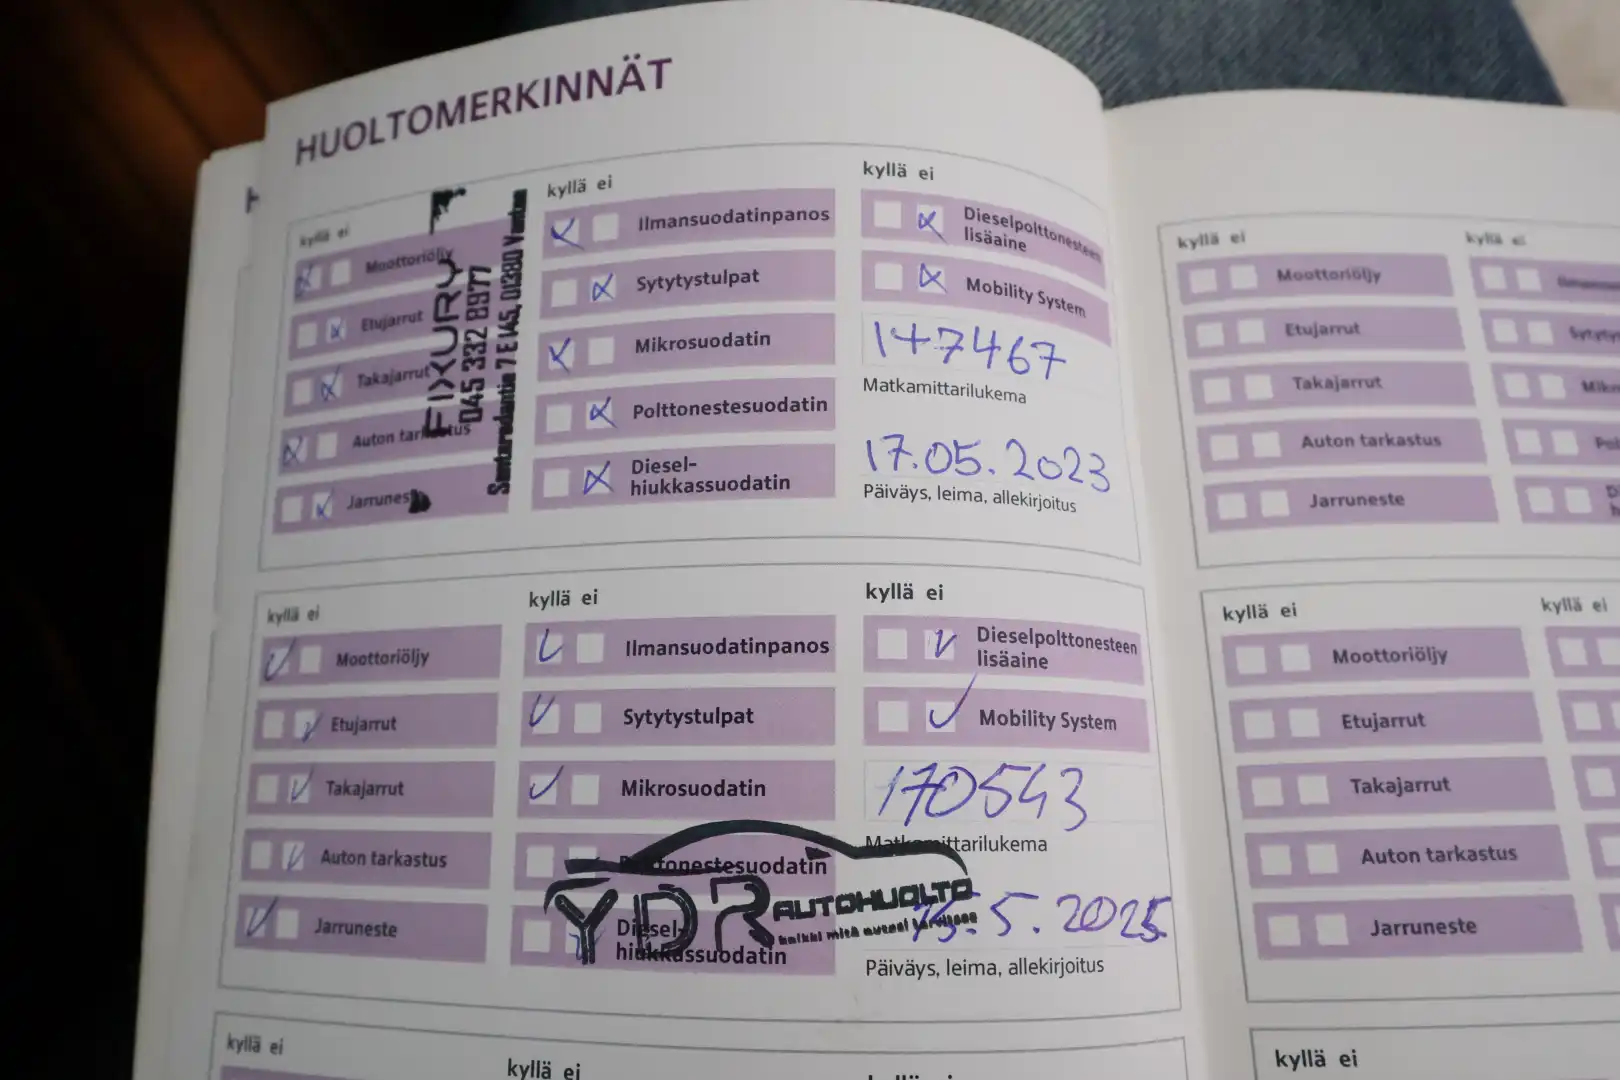 HUOLTOMERKINNÄT
kyllä ei
Moottoriöljy
Etujarrut
Takajarrut
Auton tarkastus
Jarruneste
FIXURY
045 332 8977
7 E 145, 01380 Vantaa
kyllä ei
Ilmansuodatinpanos
Sytytystulpat
Mikrosuodatin
Polttonestesuodatin
Diesel-
hiukkassuodatin
kyllä ei
Dieselpolttonesteen
lisäaine
Mobility System
147467
Matkamittarilukema
17.05.2023
Päiväys, leima, allekirjoitus
kyllä ei
Moottoriöljy
Etujarrut
Takajarrut
Auton tarkastus
Jarruneste
kyllä ei
Ilmansuodatinpanos
Sytytystulpat
Mikrosuodatin
Polttonestesuodatin
Diesel-
hiukkassuodatin
kyllä ei
Dieselpolttonesteen
lisäaine
Mobility System
170543
Matkamittarilukema
15.5.2025
Päiväys, leima, allekirjoitus
YDR AUTOHUOLTO
kaikki mitä autosi tarvitsee
kyllä ei
kyllä ei
kyllä ei
Moottoriöljy
Etujarrut
Takajarrut
Auton tarkastus
Jarruneste
kyllä ei
kyllä ei
Moottoriöljy
Etujarrut
Takajarrut
Auton tarkastus
Jarruneste
kyllä ei
kyllä ei